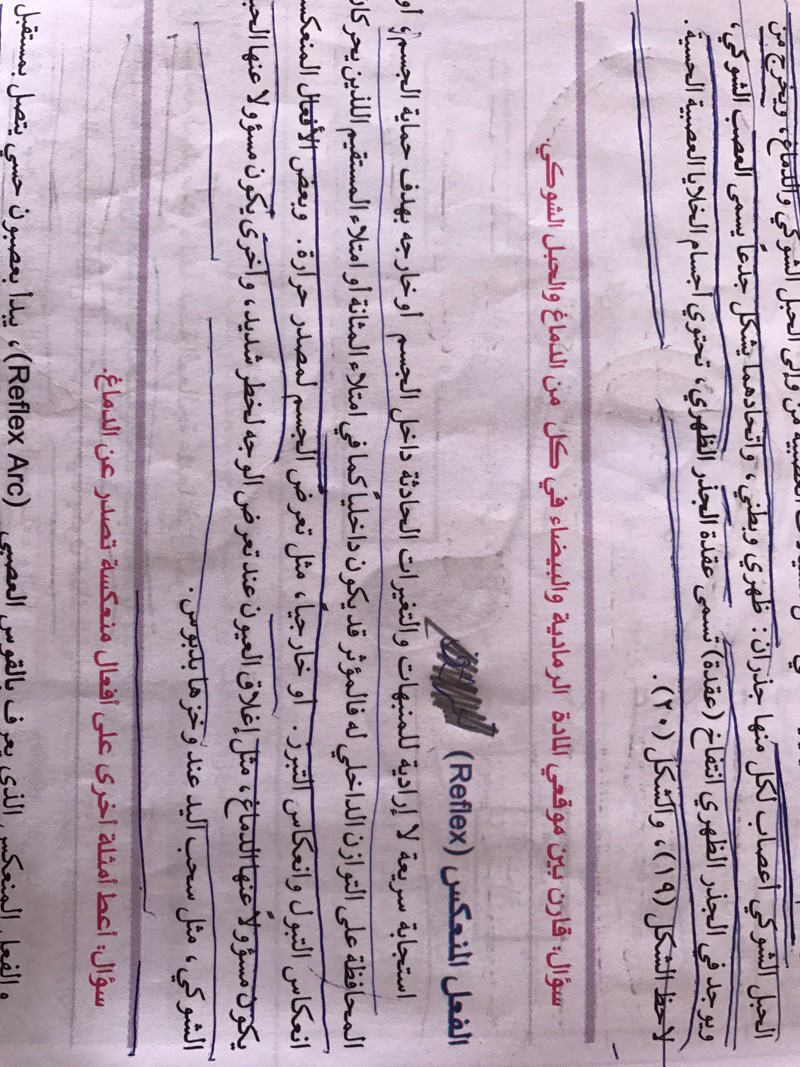 الحبل الشوكي والدماغ، ويخرج من
الحبل الشوكي أعصاب لكل منها جذران: ظهري وبطني، واتحادهما يشكل جذعاً يسمى العصب الشوكي،
ويوجد في الجذر الظهري انتفاخ (عقدة) تسمى عقدة الجذر الظهري، تحتوي أجسام الخلايا العصبية الحسية.
لاحظ الشكل (١٩)، والشكل (٢٠).
سؤال: قارن بين موقعي المادة الرمادية والبيضاء في كل من الدماغ والحبل الشوكي.
الفعل المنعكس (Reflex)
استجابة سريعة لا إرادية للمنبهات والتغيرات الحادثة داخل الجسم أو خارجه بهدف حماية الجسم، أو
المحافظة على التوازن الداخلي له فالمؤثر قد يكون داخلياً كما في امتلاء المثانة أو امتلاء المستقيم اللذين يحركان
انعكاس التبول وانعكاس التبرز. أو خارجياً، مثل تعرض الجسم لمصدر حرارة. وبعض الأفعال
يكون مسؤولاً عنها الدماغ، مثل إغلاق العيون عند تعرض الوجه لخطر شديد، وأخرى يكون مسؤولا عنها
الشوكي، مثل سحب اليد عند وخزها بدبوس.
سؤال: أعط أمثلة أخرى على أفعال منعكسة تصدر عن الدماغ.
والفعل المنعكس الذي يعرف بالقوس العصبي (Reflex Arc)، يبدأ بعصبون حسي يتصل بمستقبل